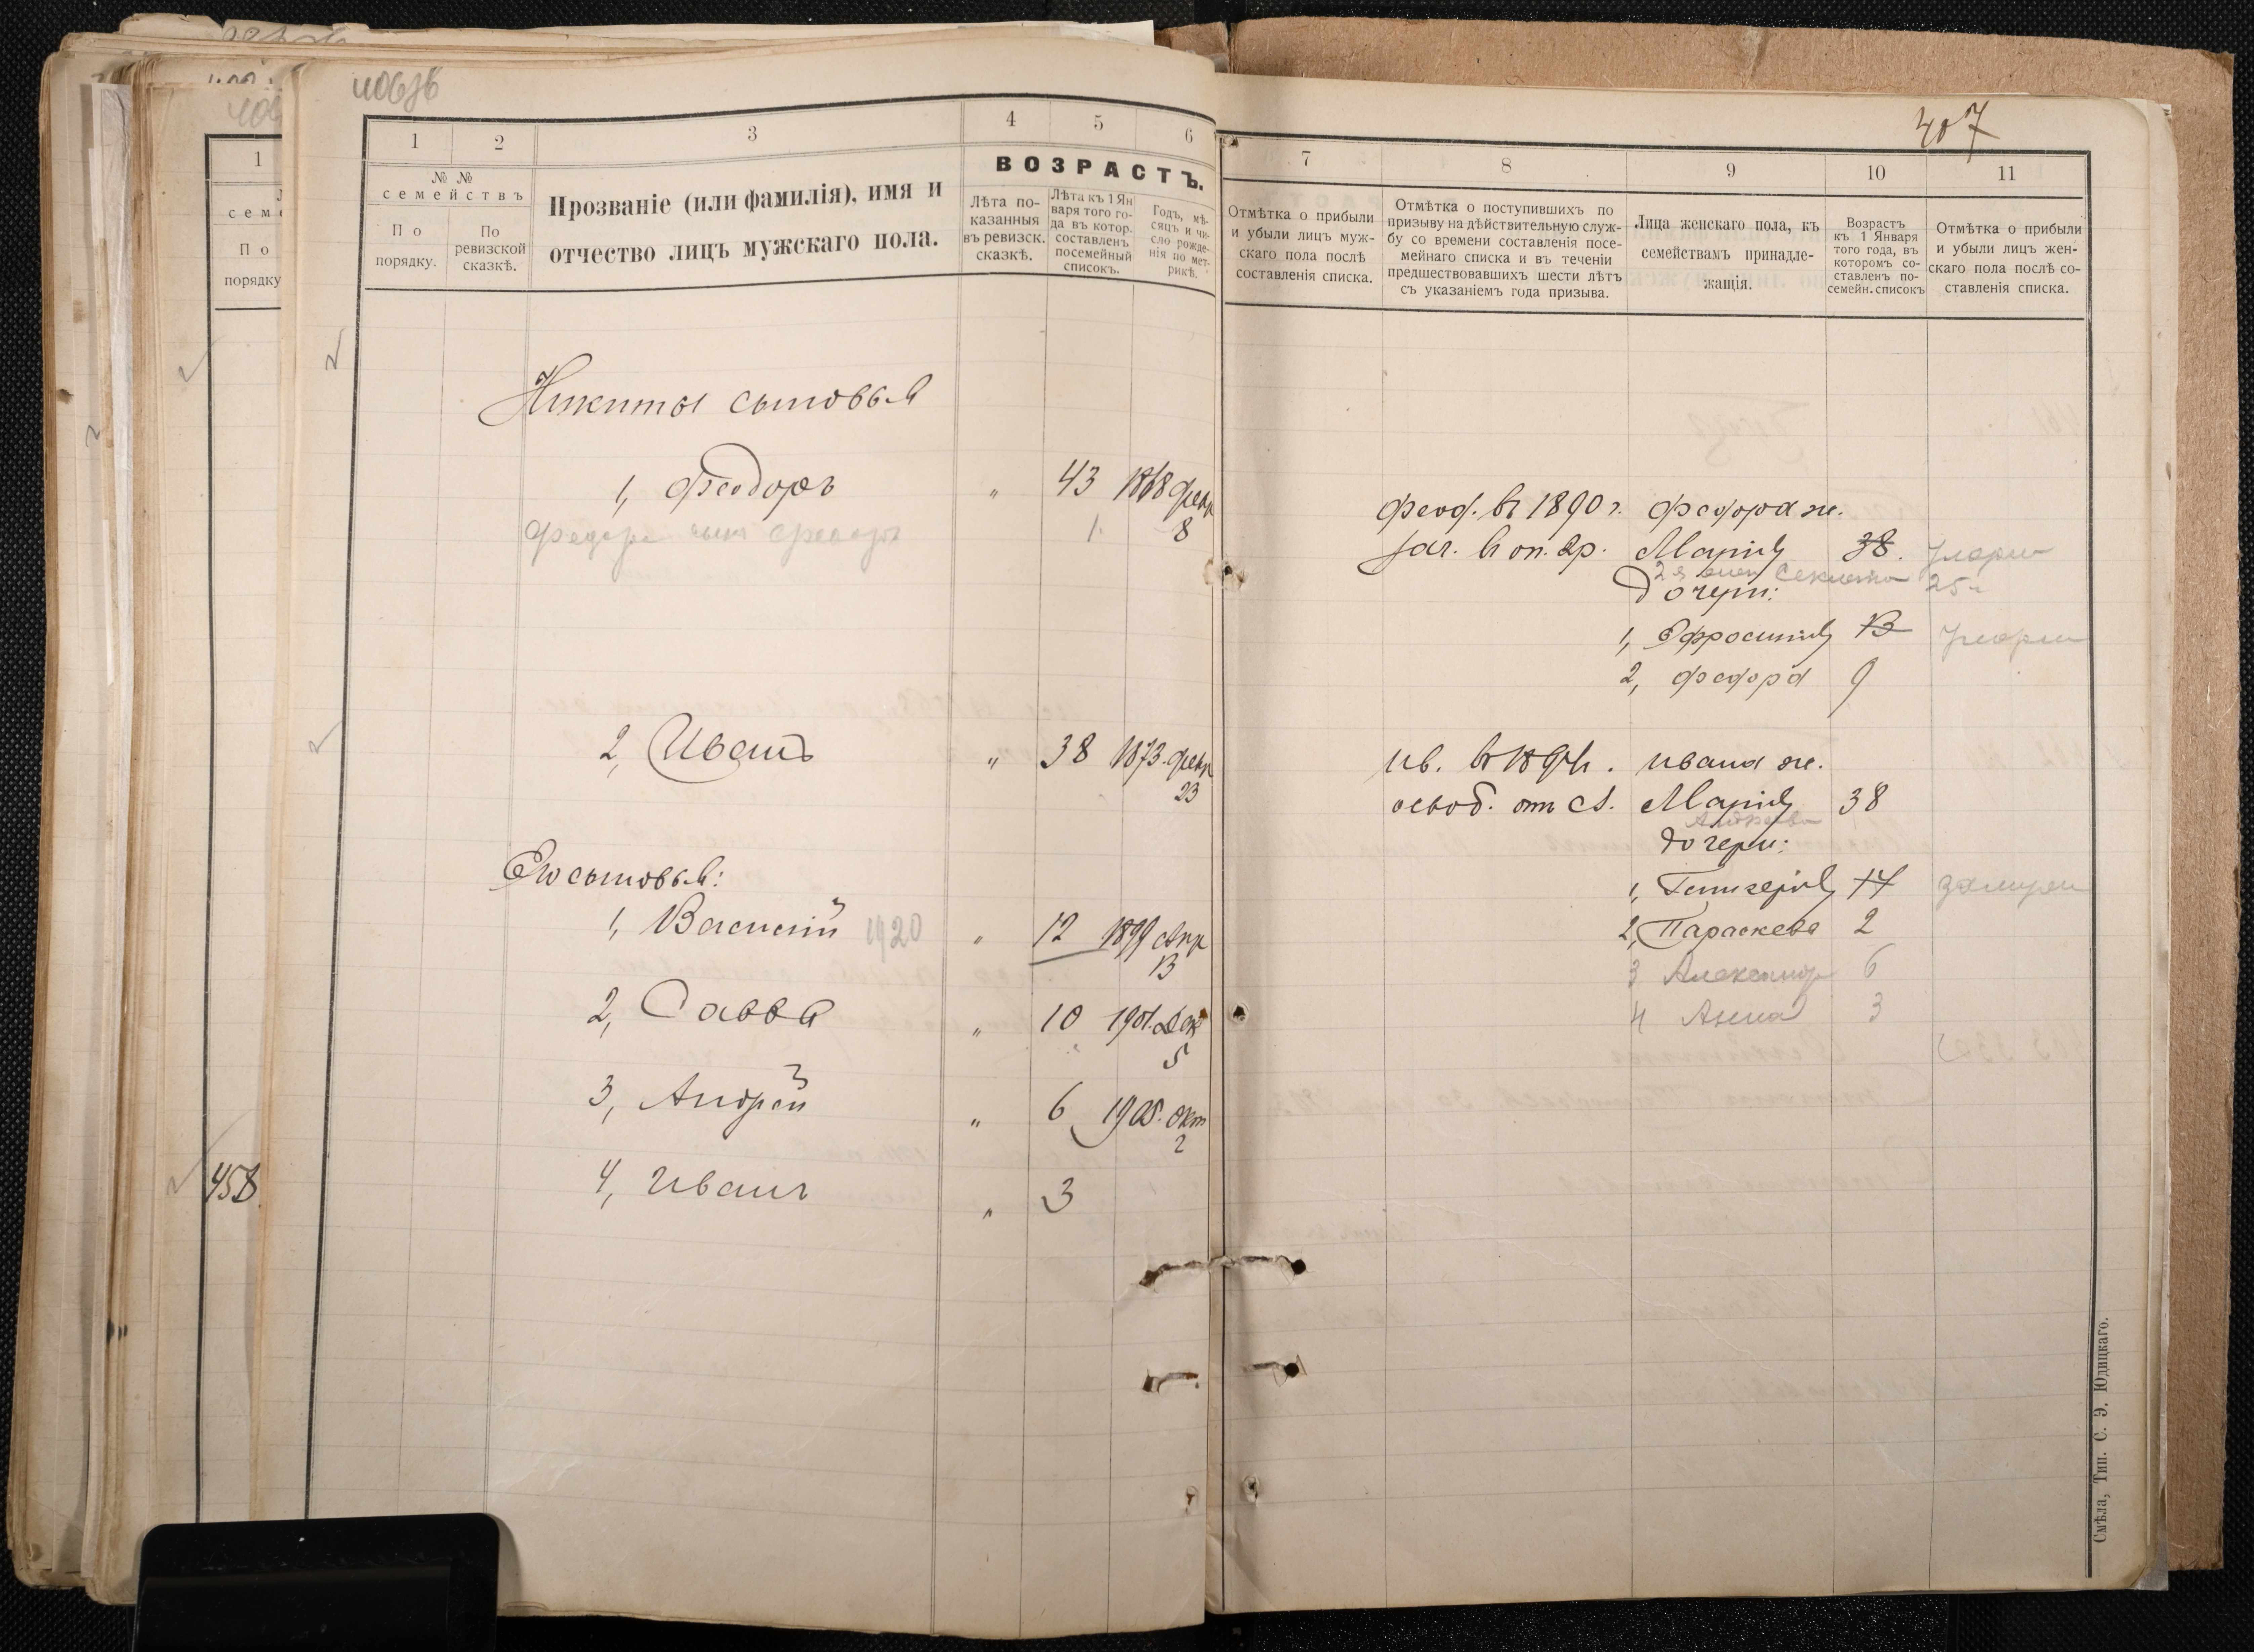 406зв
1
2
3
4
5
6
№ №
семействъ
По
порядку.
По
ревизской
сказкѣ.
Прозваніе (или фамилія), имя и
отчество лицъ мужскаго пола.
ВОЗРАСТЪ.
Лѣта по-
казанныя
въ ревизск.
сказкѣ.
Лѣта къ 1 Ян
варя того го-
да въ котор.
составленъ
посемейный
списокъ.
Годъ, мѣ-
сяцъ и чи-
сло рожде-
нія по мет-
рикѣ.
Никиты сыновья
1, Феодоръ " 43 1868 фев
8
Федора сынъ 1
2, Иванъ " 38 1873 фев
23
Его сыновья:
1, Василій 1920 " 12 1899 апр
13
2, Савва " 10 1901 Дек
5
3, Андрей " 6 1905 окт
2
4, Иванъ " 3
1
По
порядку
458
407
7
8
9
10
11
Отмѣтка о прибыли
и убыли лицъ муж-
скаго пола послѣ
составленія списка.
Отмѣтка о поступившихъ по
призыву на дѣйствительную служ-
бу со времени составленія посе-
мейнаго списка и въ теченіи
предшествовавшихъ шести лѣтъ
съ указаніемъ года призыва.
Лица женскаго пола, къ
семействамъ принадле-
жащія.
Возрастъ
къ 1 Января
того года, въ
которомъ со-
ставленъ по-
семейн. списокъ
Отмѣтка о прибыли
и убыли лицъ жен-
скаго пола послѣ со-
ставленія списка.
Феод. въ 1890 г. Федора ж.
зач. въ оп. Марія 38. умерла
2я жена 25
Дочери:
1, Ефросинія 13 умерла
2, Федора 9
Ив. въ Ивана ж.
освоб. отъ Марія 38
дочери:
1, Гликерія 14 замужем
2, Параскева 2
3 Александр 6
4 Анна 3
Смѣла, Тип. С. Э. Юдицкаго.